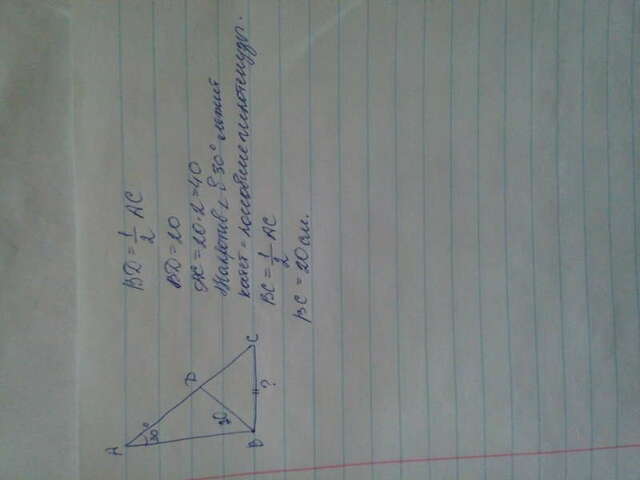 A
30°
D
20
B
?
C
BD = 1/2 AC
BD = 20
AC = 20·2 = 40
Напротив ∠ в 30° лежит
катет = половине гипотенузы.
BC = 1/2 AC
BC = 20 см.